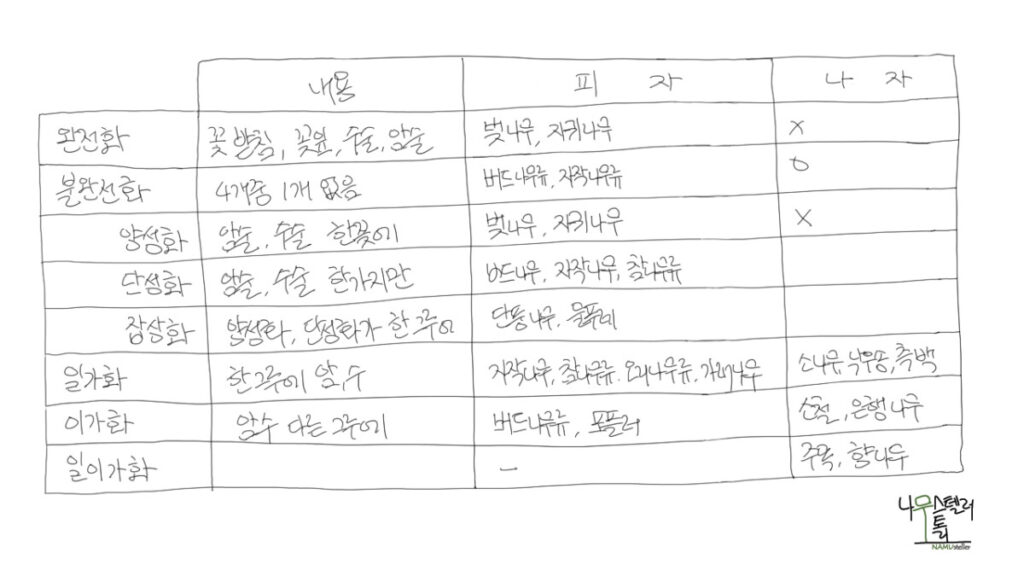 내용 피 자 나 자
완전화 꽃받침, 꽃잎, 수술, 암술 벚나무, 자귀나무 X
불완전화 4개중 1개 없음 버드나무류, 자작나무류 O
양성화 암술, 수술 한꽃에 벚나무, 자귀나무 X
단성화 암술, 수술 한가지만 버드나무, 자작나무, 참나무류
잡성화 양성화, 단성화가 한 그루에 단풍나무, 물푸레
일가화 한그루에 암,수 자작나무, 참나무류, 오리나무류, 가래나무 소나무, 낙우송, 측백
이가화 암수 다른 그루에 버드나무류, 포플러 소철, 은행나무
일이가화 – 주목, 향나무
나무스텔러
톡리
NAMUsteller